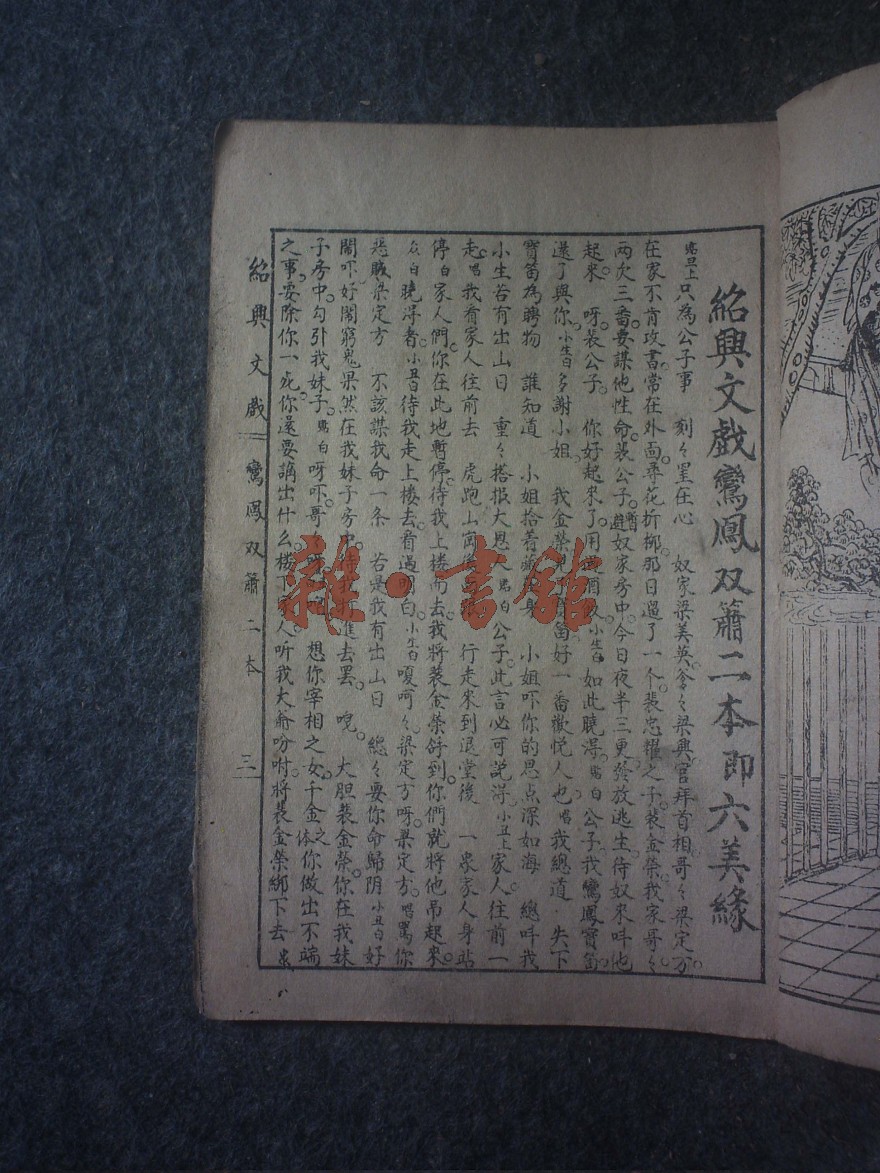 紹興文戲鸞鳳双簫二本即六美緣
貼旦上只為公子事 刻々罣在心 奴家梁美英爹々梁興官拜首相哥々梁定方
在家不肯攻書常在外面尋花折柳那日遇了一个裴忠耀之子裴金榮我家哥々
两次三番要謀他性命裴公子暫避奴家房中今日夜半三更放逃生待奴來呌他
起來 呀裴公子 你好起來了用酒小生白如此曉淂貼白公子我鸞鳳寶笛
送了與你小生白多謝小姐 我金榮寶笛好一番歡悅人也唱我總道 失下
寶笛為聘物 誰知道 小姐拾着身 小姐吓你的恩点深如海 總呌我
小生若有出山日 重々搭报大恩人貼白公子此言必可説淂小丑上家人往前一
走唱我看家人往前去 虎跑山 行走來到退堂後 一衆家人身站
停白家人們你在此地暫停待我上楼而去我將裴金榮呼到你們就將他吊起來
众白曉淂者小丑白待我走上楼去看過明白小生白嗄呵々梁定方呀梁定方唱罵你
惡贼梁定方 不該謀我命一条 若是我有出山日 總々要你命歸阴小丑白好
鬧吓好鬧窮鬼果然在我妹子房中待我打進去罢 唗 大胆裴金榮你在我妹
子房中勾引我妹子貼白呀吓哥 想你宰相之女千金之体你做出不端
之事要除你一死你還要講出什么楼下人听我大爺吩咐將裴金榮綁下去衆
紹興文戲 鸞鳳双簫二本 三
雜·書館